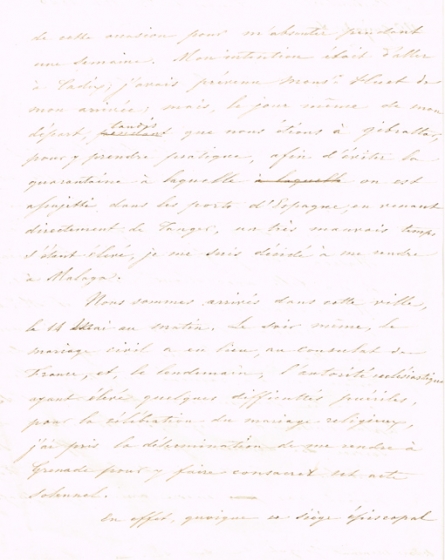 de cette occasion pour m'absenter pendant
une semaine. Mon intention était d'aller
à Cadix; j'avais prévenu Monsr. Huet de
mon arrivée; mais, le jour même de mon
départ, tandis que nous étions à Gibraltar,
pour y prendre pratique, afin d'éviter la
quarantaine à laquelle à laquelle on est
assujetti dans les ports d'Espagne, en venant
directement de Tanger, un très mauvais temps
s'étant élevé, je me suis décidé à me rendre
à Malaga.
Nous sommes arrivés dans cette ville,
le 14 Mai au matin. Le soir même, le
mariage civil a eu lieu, au Consulat de
France, et, le lendemain, l'autorité ecclésiastique
ayant élevé quelques difficultés puériles,
pour la célébration du mariage religieux,
j'ai pris la détermination de me rendre à
Grenade pour y faire consacrer cet acte
solennel.
En effet, quoique ce siège épiscopal